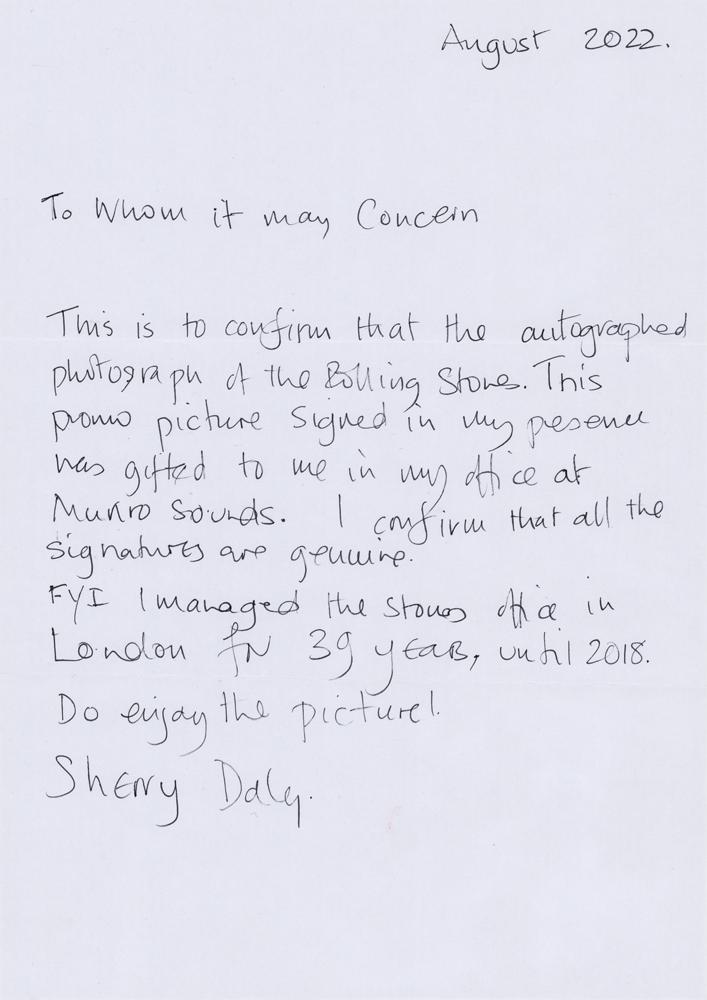 August 2022.
To Whom it may Concern
This is to confirm that the autographed
photograph of the Rolling Stones. This
promo picture signed in my presence
was gifted to me in my office at
Munro Sounds. I confirm that all the
signatures are genuine.
FYI I managed the Stones office in
London for 39 years, until 2018.
Do enjoy the picture!
Sherry Daly.